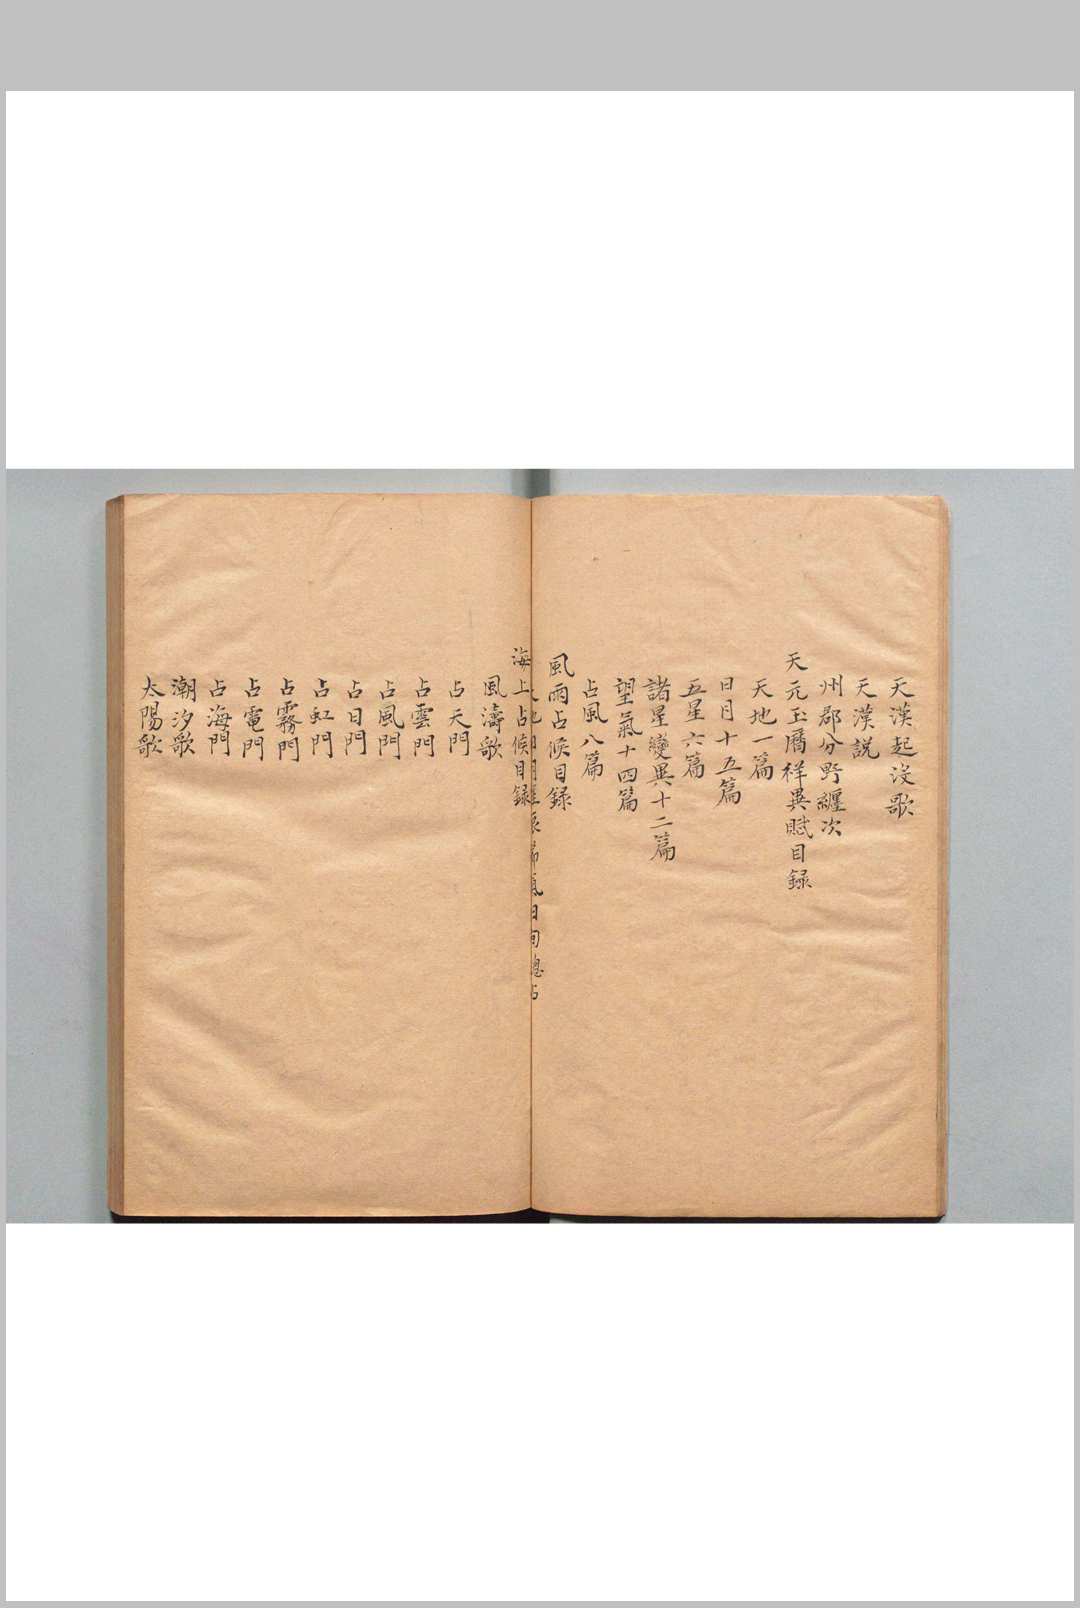 天漢起没歌
天漢說
州郡分野纒次
天元玉曆祥異賦目録
天地一篇
日月十五篇
五星六篇
諸星變異十二篇
望氣十四篇
占風八篇
風雨占候目録
海上占候目録
風濤歌
占天門
占雲門
占風門
占日門
占虹門
占霧門
占電門
占海門
潮汐歌
太陽歌